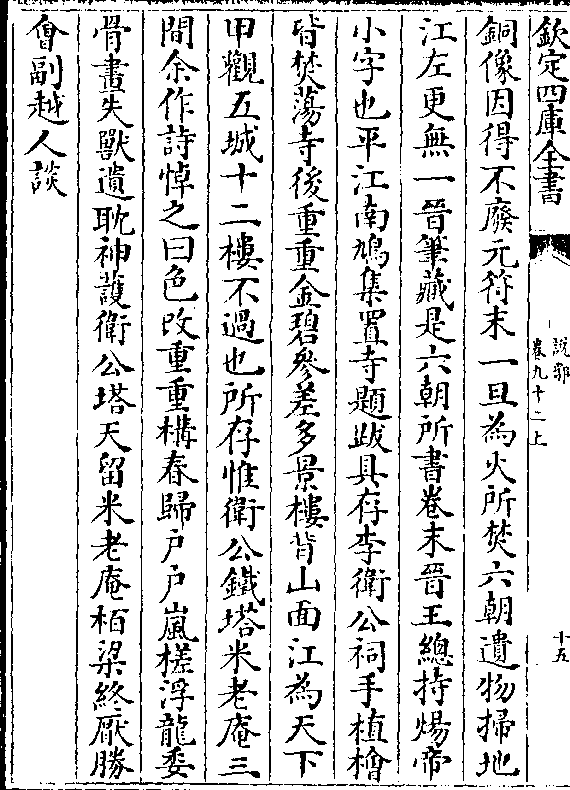 欽定四庫全書
説郛
卷九十二上
十五
銅像因得不廢元符末一旦為火所焚六朝遺物掃地
江左更無一晉筆藏是六朝所書卷末晉王總持煬帝
小字也平江南鳩集置寺題跋具存李衛公祠手植檜
皆焚蕩寺後重重金碧參差多景樓背山面江為天下
甲觀五城十二樓不過也所存惟衛公鐵塔米老庵三
間余作詩悼之曰色改重重構春歸户户嵐槎浮龍委
骨畫失獸遺耽神護衛公塔天留米老庵栢梁終厭勝
會副越人談